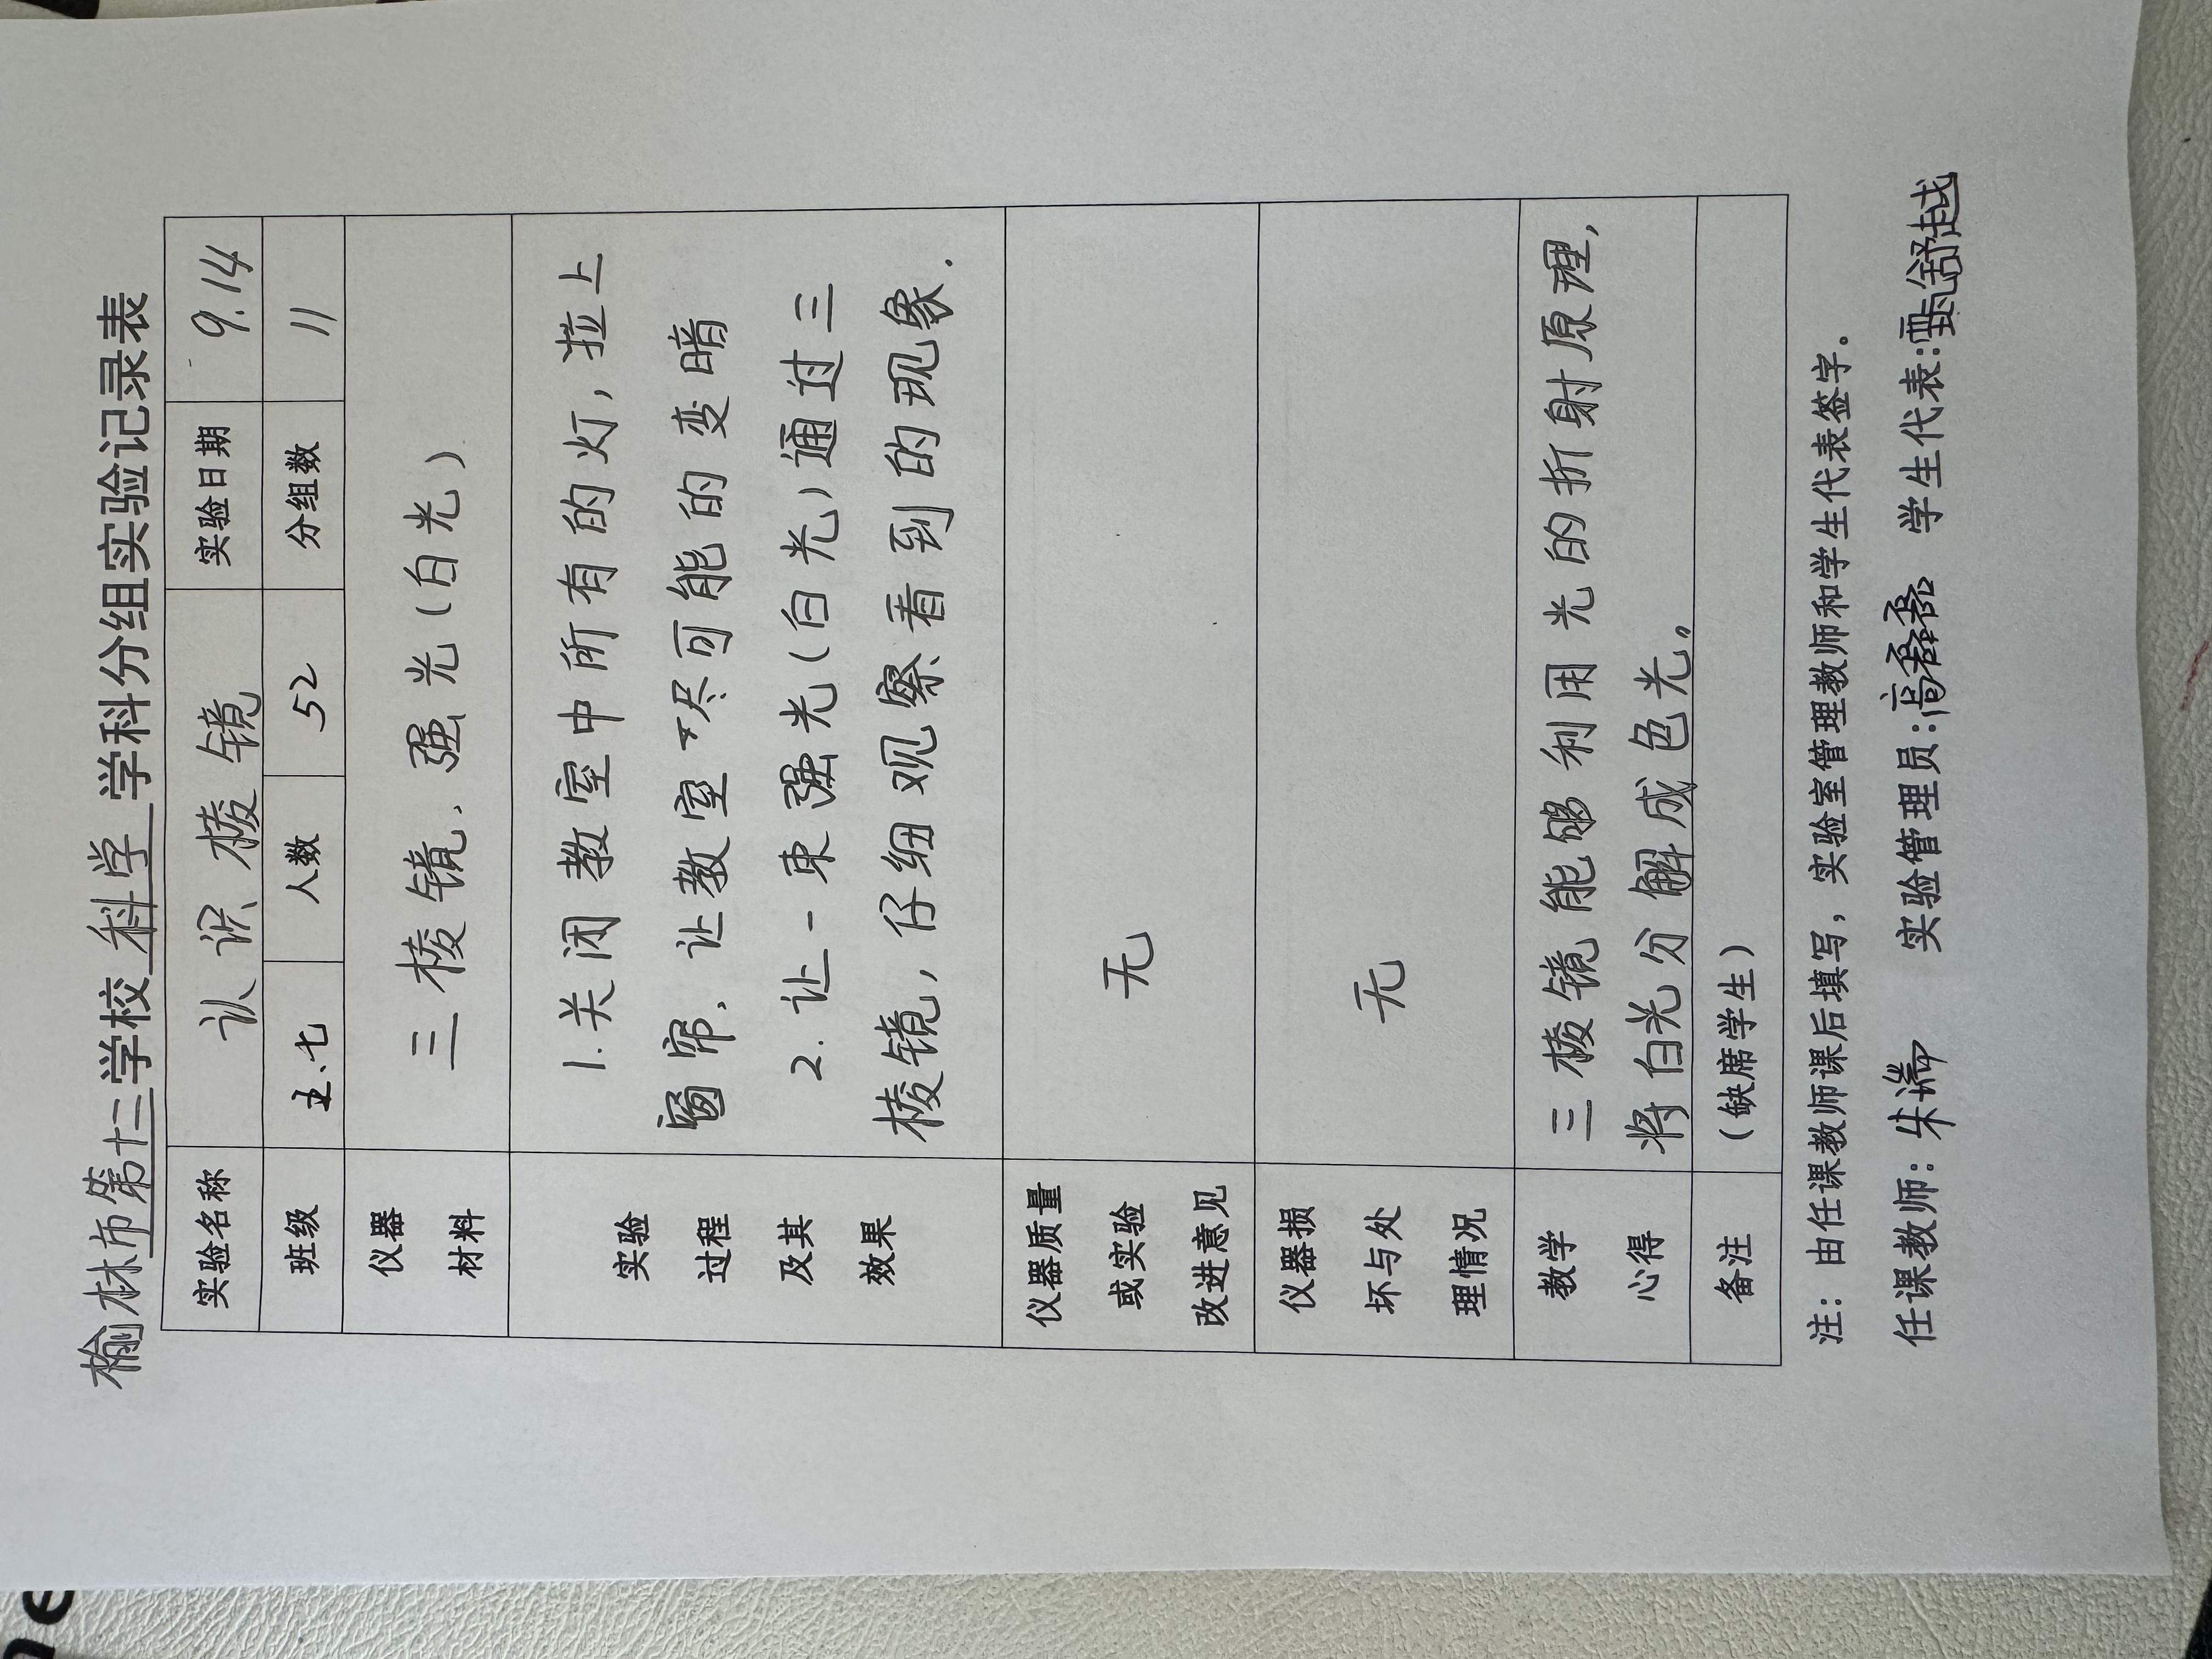 榆林市第十三学校 科学 学科分组实验记录表
实验名称 认识棱镜 实验日期 9.14
班级 五.七 人数 52 分组数 11
仪器
材料
三棱镜、强光(白光)
实验
过程
及其
效果
1.关闭教室中所有的灯,拉上
窗帘,让教室尽可能的变暗
2.让一束强光(白光)通过三
棱镜,仔细观察看到的现象.
仪器质量
或实验
改进意见
无
仪器损
坏与处
理情况
无
教学
心得
三棱镜能够利用光的折射原理,
将白光分解成色光。
备注 (缺席学生)
注:由任课教师课后填写,实验室管理教师和学生代表签字。
任课教师:朱端 实验管理员:高 学生代表:甄舒越